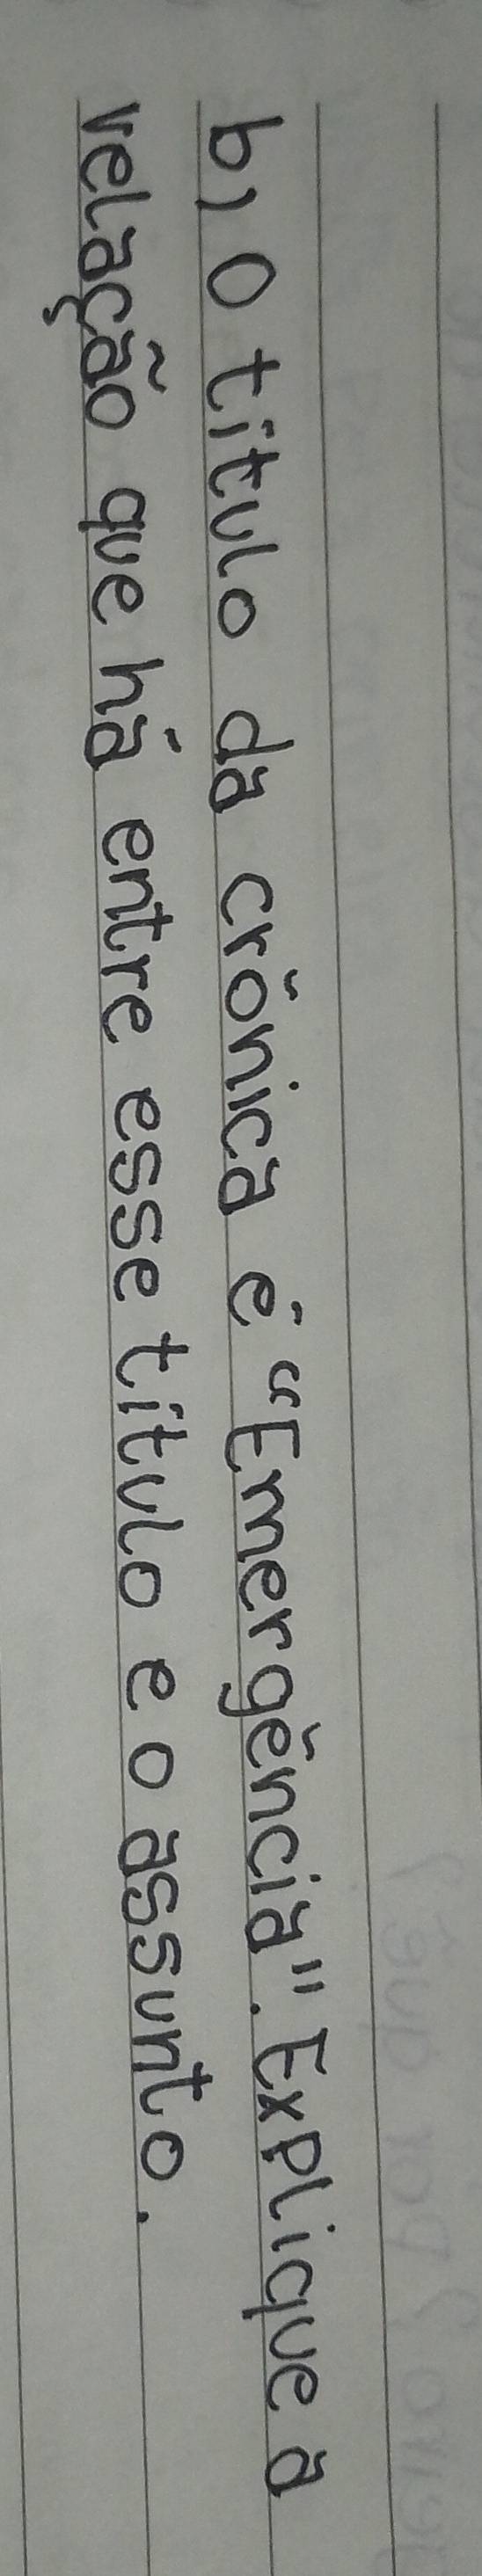 b) O título da crônica é "Emergência". Explique a
relação que há entre esse título e o assunto.